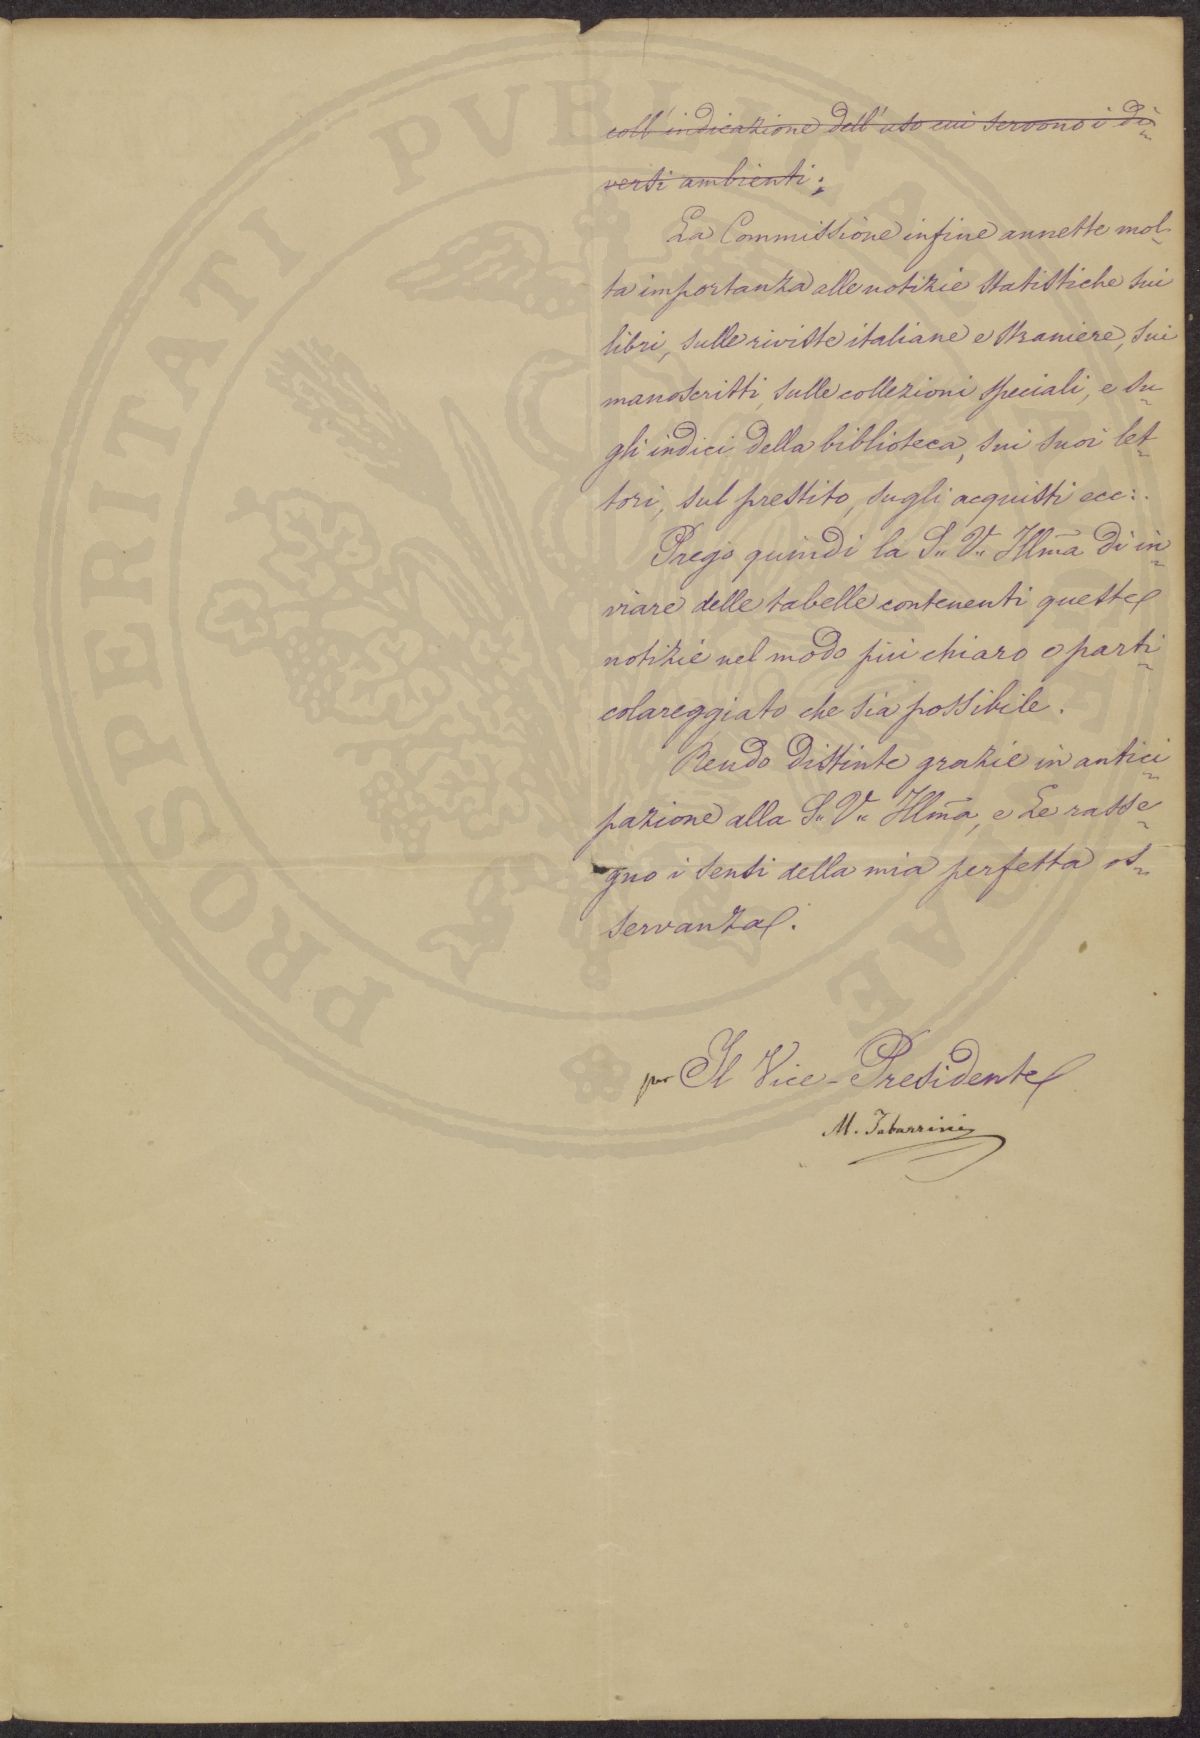 coll'indicazione dell'uso cui servono i di-
versi ambienti;
La Commissione infine annette mol-
ta importanza alle notizie statistiche sui
libri, sulle riviste italiane e straniere, sui
manoscritti, sulle collezioni speciali, e su-
gli indici della biblioteca, sui suoi let-
tori, sul prestito, sugli acquisti ecc:.
Prego quindi la S." V." Illm̃a di in-
viare delle tabelle contenenti queste
notizie nel modo più chiaro e parti-
colareggiato che sia possibile.
Rendo distinte grazie in antici-
pazione alla S." V." Illm̃a, e Le rasse-
gno i sensi della mia perfetta os-
servanza.
per Il Vice-Presidente
M. Tabarrini
PROSPERITATI PVBLICAE